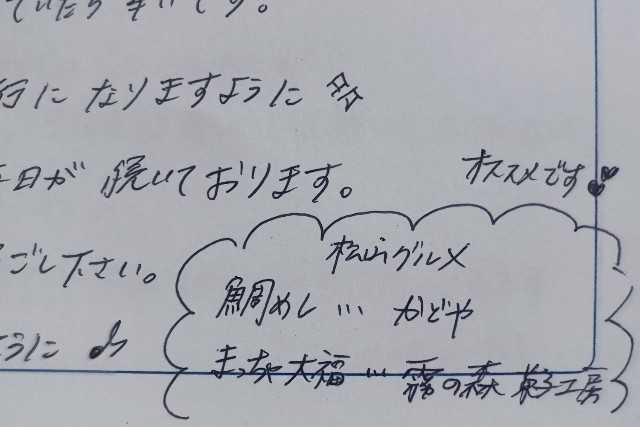 ていたら幸いです。
行になりますように
日が続いております。
オススメです
ごし下さい。
松山グルメ
鯛めし … かどや
うに♪
まっちゃ大福 … 霧の森 菓子工房